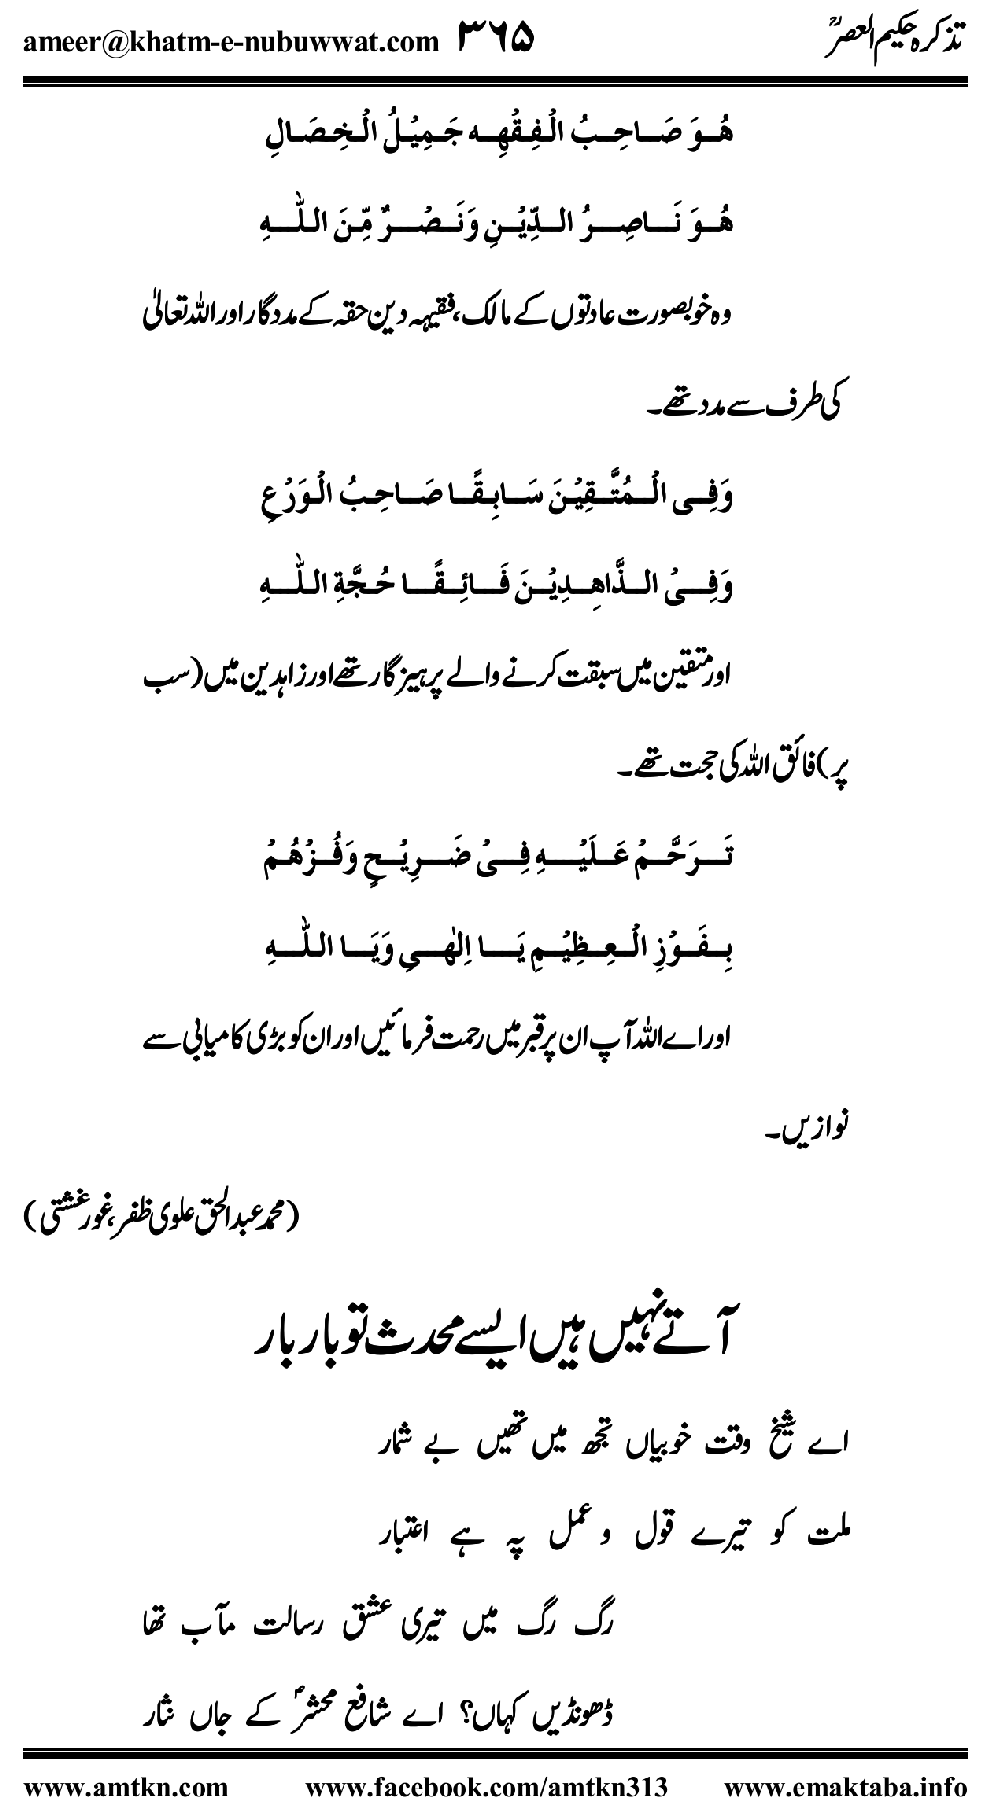 ameer@khatm-e-nubuwwat.com ۳۶۵ تذکرہ حکیم العصرؒ
هُوَ صَاحِبُ الْفِقْهِهِ جَمِيْلُ الْخِصَالِ
هُوَ نَاصِرُ الدِّيْنِ وَنَصْرٌ مِّنَ اللّٰهِ
وہ خوبصورت عادتوں کے مالک، فقیہہ دین حقہ کے مددگار اور اللہ تعالیٰ
کی طرف سے مدد تھے۔
وَفِى الْمُتَّقِيْنَ سَابِقًا صَاحِبُ الْوَرْعِ
وَفِىْ الذَّاهِدِيْنَ فَائِقًا حُجَّةِ اللّٰهِ
اور متقین میں سبقت کرنے والے پرہیزگار تھے اور زاہدین میں (سب
پر) فائق اللہ کی حجت تھے۔
تَرَحَّمْ عَلَيْهِ فِىْ ضَرِيْحٍ وَفُزْهُمْ
بِفَوْزِ الْعِظِيْمِ يَا اِلٰهِى وَيَا اللّٰهِ
اور اے اللہ آپ ان پر قبر میں رحمت فرمائیں اور ان کو بڑی کامیابی سے
نوازیں۔
(محمد عبدالحق علوی ظفر، غور غشتی)
آتے نہیں ہیں ایسے محدث تو بار بار
اے شیخ وقت خوبیاں تجھ میں تھیں بے شمار
ملت کو تیرے قول و عمل پہ ہے اعتبار
رگ رگ میں تیری عشق رسالت مآب تھا
ڈھونڈیں کہاں؟ اے شافع محشرؐ کے جاں نثار
www.amtkn.com www.facebook.com/amtkn313 www.emaktaba.info